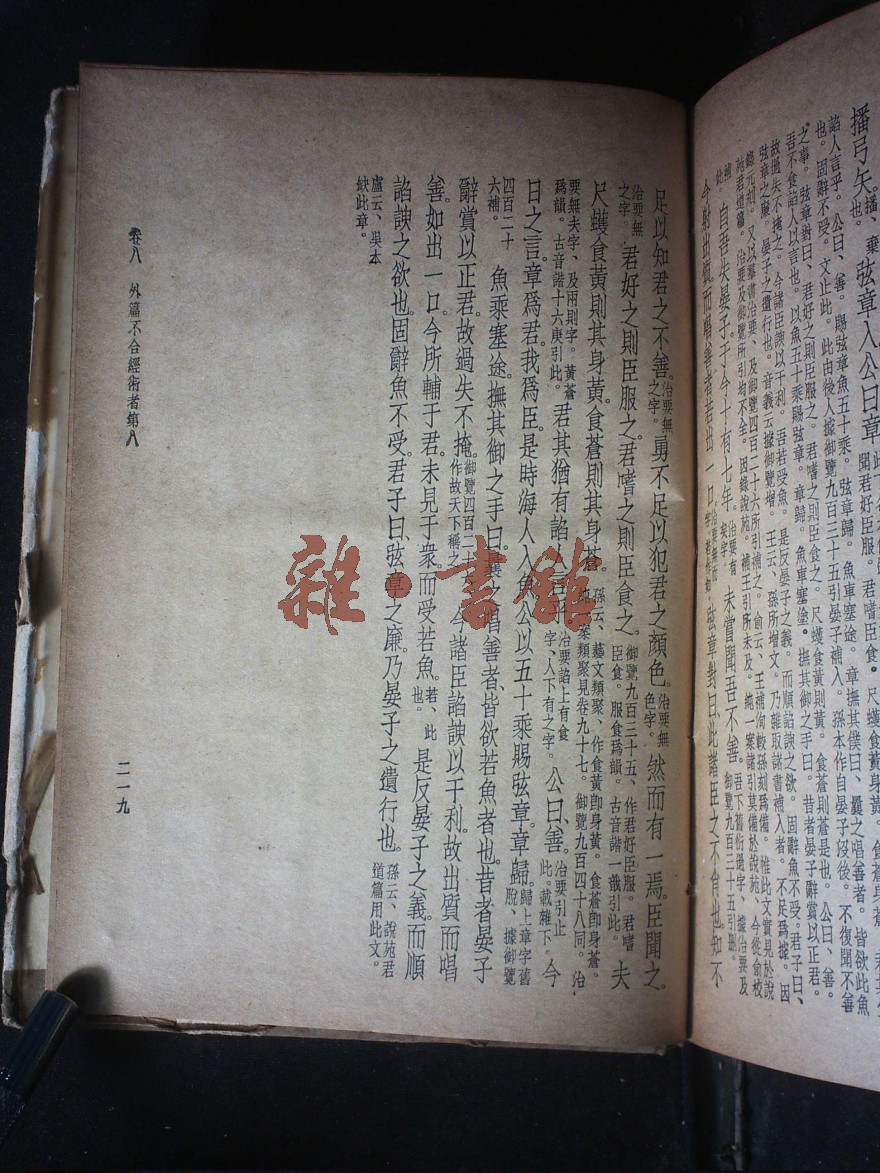 播弓矢。播、棄也。弦章入公曰章
諂人言乎。公曰、善。賜弦章魚五十乘。弦章歸。魚車塞途。章撫其僕曰、曩之唱善者。皆欲此魚
也。固辭不受。文止此。此由後人據御覽九百三十五引晏子補入。孫本作自晏子歿後。不復聞不善
之事。弦章對曰、君好之則臣服之。君嗜之則臣食之。尺蠖食黃則黃。食蒼則蒼是也。公曰、善。
吾不食諂人以言也。以魚五十乘賜弦章。章歸。魚車塞塗。撫其御之手曰。昔者晏子辭賞以正君。
故過失不掩之。今諸臣諛以干利。吾若受魚。是反晏子之義。而順諂諛之欲。固辭魚不受。君子曰、
弦章之廉。晏子之遺行也。音義云據御覽增。王云、孫所增文。乃雜取諸書補入者。不足為據。因
錄元刻。又以羣書治要、及御覽四百二十六所引補之。俞云、王補洵較孫刻為備。惟此文實見於說
苑君道篇。治要及御覽所引均不全。因錄說苑。補王引所未及。純一案諸引莫備於說苑。今從俞校
補。自君失晏子于今十有七年。治要有矣字。未嘗聞吾不善。吾下舊衍過字、據治要及御覽九百三十五引刪。
今射出質。而唱善者若出一口。弦章對曰、此諸臣之不肖也。知不
足以知君之不善。治要無之字。勇不足以犯君之顏色。治要無色字。然而有一焉。臣聞之。
治要無之字。君好之則臣服之。君嗜之則臣食之。御覽九百三十五、作君好臣服。君嗜臣食。服食為韻。古音諧一戠引此。夫
尺蠖食黃則其身黃。食蒼則其身蒼。孫云、藝文類聚、作食黃卽身黃。食蒼卽身蒼。純一案類聚見卷九十七。御覽九百四十八同。治
要無夫字、及兩則字。黃蒼為韻。古音諧十六庚引此。君其猶有諂人言乎。治要諂上有食字、人下有之字。公曰、善。治要引止此。載雜下。今
日之言。章為君。我為臣。是時海人入魚。公以五十乘賜弦章。章歸。歸上章字舊脫、據御覽
四百二十六補。魚乘塞途。撫其御之手曰。曩之唱善者、皆欲若魚者也。昔者晏子
辭賞以正君。故過失不掩。御覽四百二十六作故天下稱之。今諸臣諂諛以干利。故出質而唱
善如出一口。今所輔于君。未見于衆。而受若魚。若、此也。是反晏子之義。而順
諂諛之欲也。固辭魚不受。君子曰、弦章之廉。乃晏子之遺行也。孫云、說苑君道篇用此文。
盧云、吳本缺此章。
卷八　外篇不合經術者第八
二一九
雜·書館